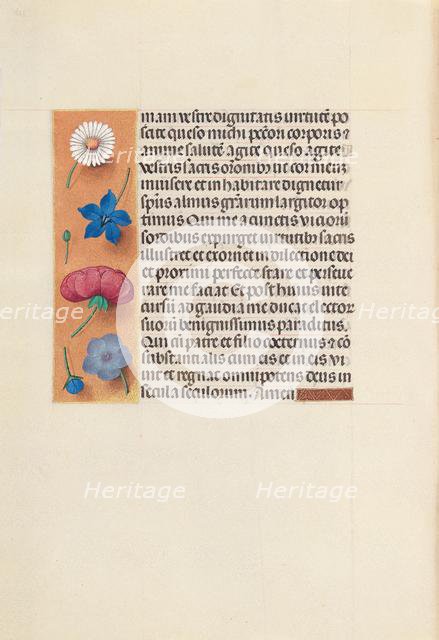 mam vestre dignitatis virtutē po
scite queso michi pctōri corporis ⁊
anime salutē agite queso agite
vestris sacris orōnibus ut cor meū
inuisere et inhabitare dignetur
spūs almus gratiarum largitor op
timus Qui me a cunctis viciorū
sordibus expurget virtutibus sacris
illustret et exornet in dilectione dei
et proximi perfecte stare et perseue
rare me faciat Et post huius vite
cursū ad gaudia me ducat electorū
suorū benignissimus paraclitus.
Qui cū patre et filio coeternus ⁊ cō
substantialis cum eis et in eis vi
uit et regnat omnipotens deus in
secula seculorum. Amen
Heritage
Heritage
Heritage
Heritage
Heritage
Heritage